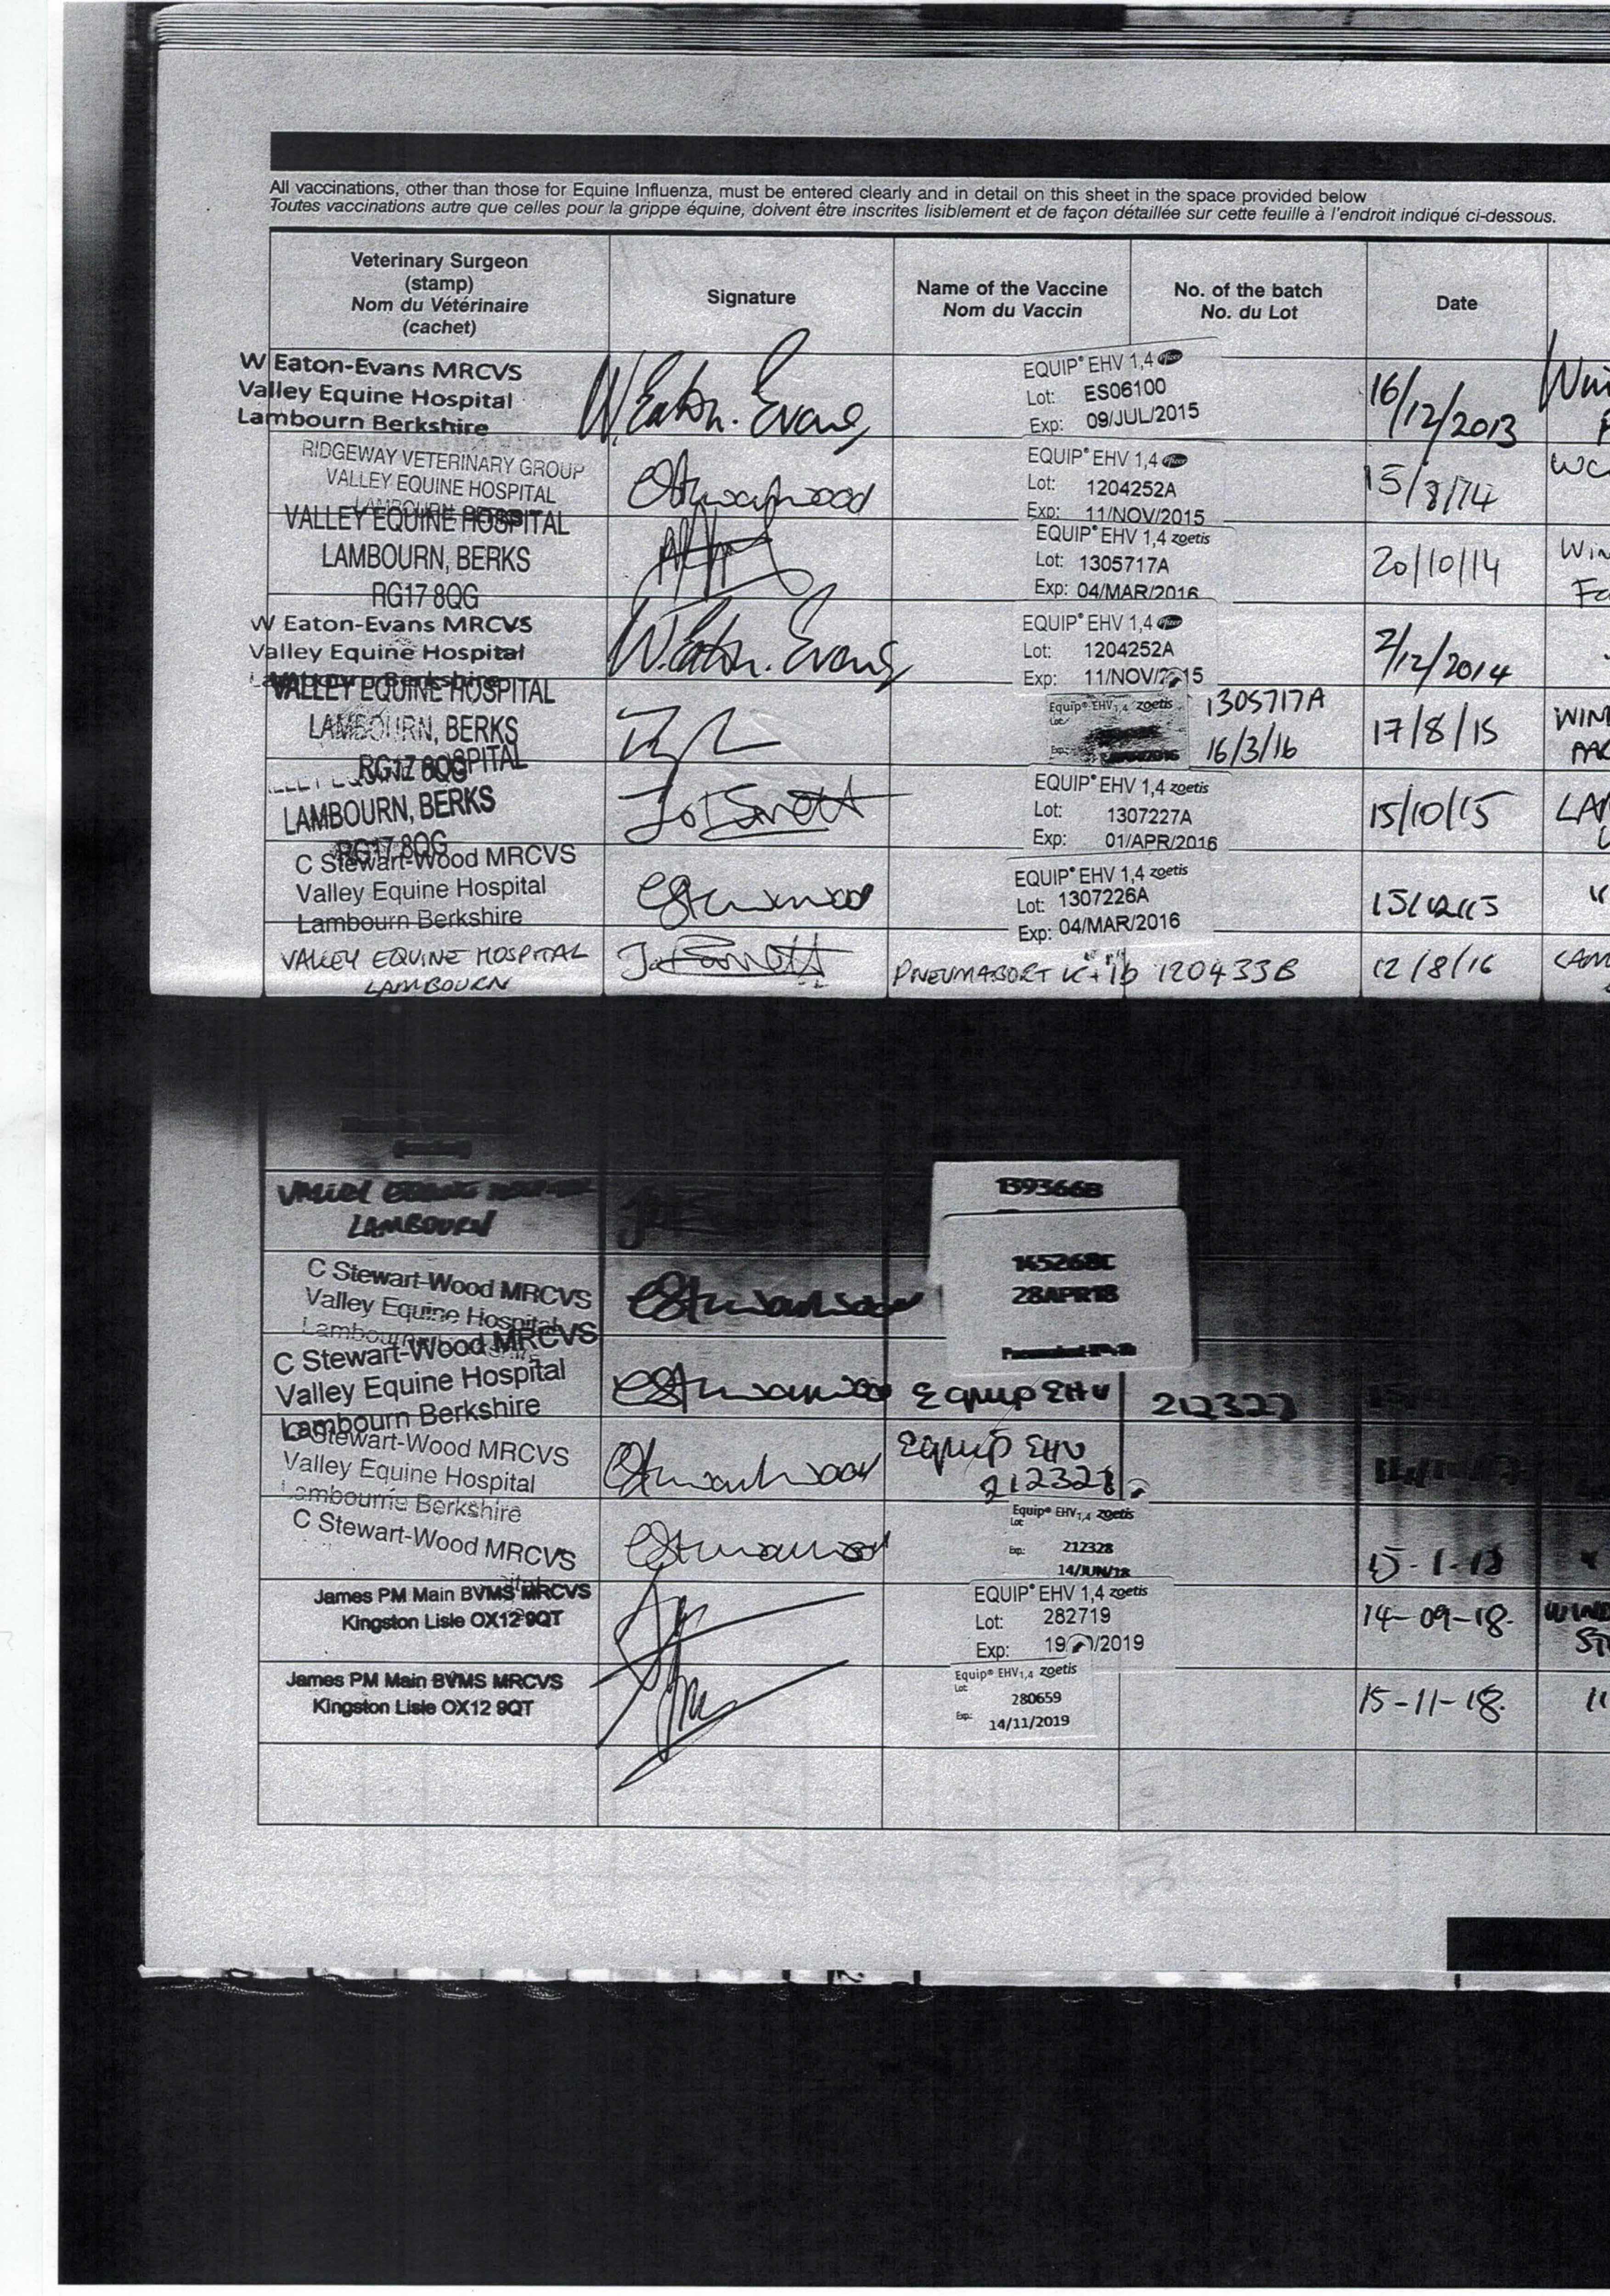 All vaccinations, other than those for Equine Influenza, must be entered clearly and in detail on this sheet in the space provided below
Toutes vaccinations autre que celles pour la grippe équine, doivent être inscrites lisiblement et de façon détaillée sur cette feuille à l'endroit indiqué ci-dessous.
Veterinary Surgeon
(stamp)
Nom du Vétérinaire
(cachet)
Signature
Name of the Vaccine
Nom du Vaccin
No. of the batch
No. du Lot
Date
W Eaton-Evans MRCVS
Valley Equine Hospital
Lambourn Berkshire
W. Eaton. Evans
EQUIP® EHV 1,4 Pfizer
Lot: ES06100
Exp: 09/JUL/2015
16/12/2013
RIDGEWAY VETERINARY GROUP
VALLEY EQUINE HOSPITAL
LAMBOURN
EQUIP® EHV 1,4 Pfizer
Lot: 1204252A
Exp: 11/NOV/2015
15/8/14
VALLEY EQUINE HOSPITAL
LAMBOURN, BERKS
RG17 8QG
EQUIP® EHV 1,4 zoetis
Lot: 1305717A
Exp: 04/MAR/2016
20/10/14
W Eaton-Evans MRCVS
Valley Equine Hospital
Lambourn Berkshire
W. Eaton. Evans
EQUIP® EHV 1,4 Pfizer
Lot: 1204252A
Exp: 11/NOV/2015
2/12/2014
VALLEY EQUINE HOSPITAL
LAMBOURN, BERKS
RG17 8QG
Equip® EHV1,4 zoetis
Lot
Exp:
1305717A
16/3/16
17/8/15
HOSPITAL
LAMBOURN, BERKS
RG17 8QG
EQUIP® EHV 1,4 zoetis
Lot: 1307227A
Exp: 01/APR/2016
15/10/15
C Stewart-Wood MRCVS
Valley Equine Hospital
Lambourn Berkshire
EQUIP® EHV 1,4 zoetis
Lot: 1307226A
Exp: 04/MAR/2016
15/12/15
VALLEY EQUINE HOSPITAL
LAMBOURN
PNEUMABORT K+1b 120433B
12/8/16
LAMBOURN
139366B
C Stewart-Wood MRCVS
Valley Equine Hospital
Lambourn
145268C
28APR18
C Stewart-Wood MRCVS
Valley Equine Hospital
Lambourn Berkshire
Equip EHV
212327
C Stewart-Wood MRCVS
Valley Equine Hospital
Lambourne Berkshire
Equip EHV
212327
C Stewart-Wood MRCVS
Equip® EHV1,4 zoetis
Lot
Exp: 212328
14/JUN/18
15-1-18
James PM Main BVMS MRCVS
Kingston Lisle OX12 9QT
EQUIP® EHV 1,4 zoetis
Lot: 282719
Exp: 19/ /2019
14-09-18.
James PM Main BVMS MRCVS
Kingston Lisle OX12 9QT
Equip® EHV1,4 zoetis
Lot: 280659
Exp: 14/11/2019
15-11-18.
11